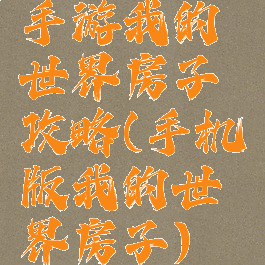 手游我的
世界房子
攻略(手机
版我的世
界房子)